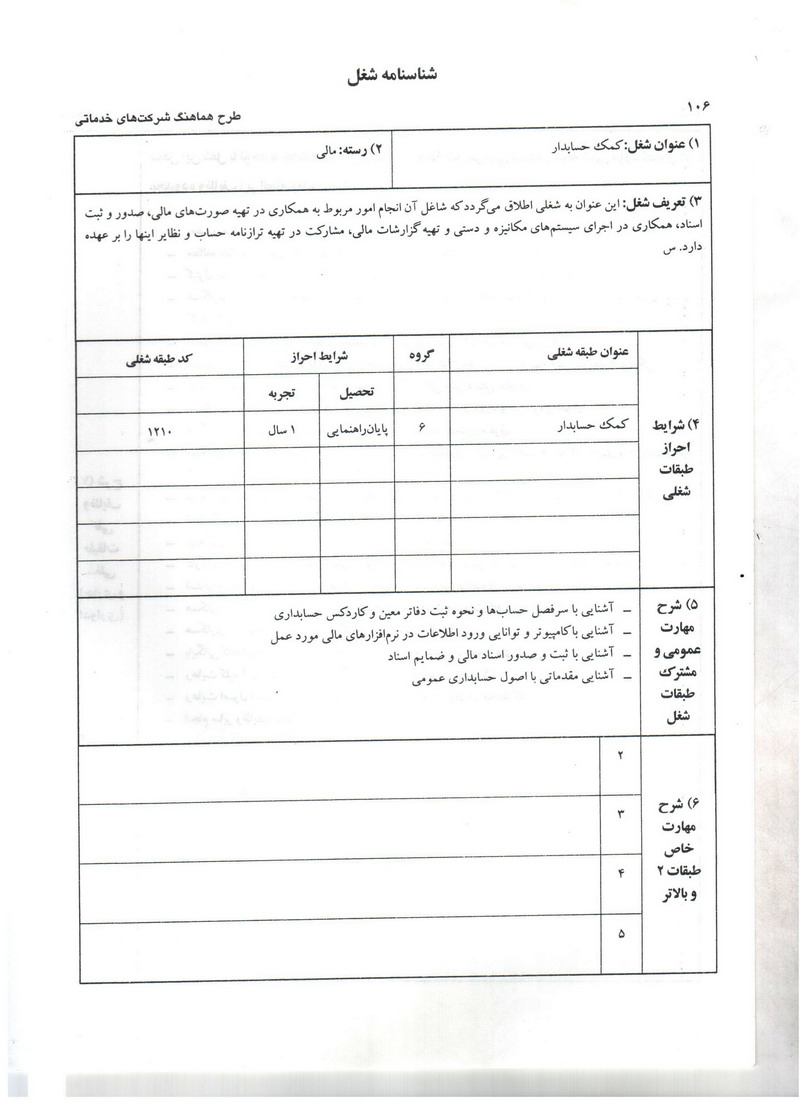 شناسنامه شغل
۱۰۶
طرح هماهنگ شرکت‌های خدماتی
۱) عنوان شغل: کمک حسابدار
۲) رسته: مالی
۳) تعریف شغل: این عنوان به شغلی اطلاق می‌گردد که شاغل آن انجام امور مربوط به همکاری در تهیه صورت‌های مالی، صدور و ثبت
اسناد، همکاری در اجرای سیستم‌های مکانیزه و دستی و تهیه گزارشات مالی، مشارکت در تهیه ترازنامه حساب و نظایر اینها را بر عهده
دارد. س
۴) شرایط
احراز
طبقات
شغلی
عنوان طبقه شغلی
گروه
شرایط احراز
کد طبقه شغلی
تحصیل
تجربه
کمک حسابدار
۶
پایان‌راهنمایی
۱ سال
۱۲۱۰
۵) شرح
مهارت
عمومی و
مشترک
طبقات
شغل
– آشنایی با سرفصل حساب‌ها و نحوه ثبت دفاتر معین و کاردکس حسابداری
– آشنایی با کامپیوتر و توانایی ورود اطلاعات در نرم‌افزارهای مالی مورد عمل
– آشنایی با ثبت و صدور اسناد مالی و ضمایم اسناد
– آشنایی مقدماتی با اصول حسابداری عمومی
۶) شرح
مهارت
خاص
طبقات ۲
و بالاتر
۲
۳
۴
۵